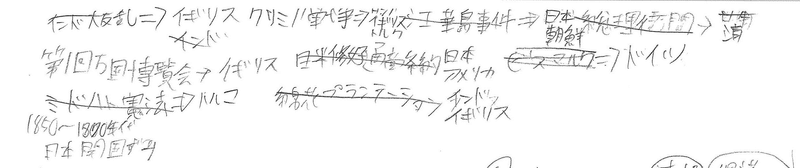 インド大反乱⇒イギリス インド クリミア戦争⇒イギリス トルコ 江華島事件⇒日本 朝鮮 総理衙門→清
第1回万国博覧会→イギリス 日米修好通商条約 日本 アメリカ ビスマルク⇒ドイツ
ミドハト憲法⇒トルコ 綿花プランテーション インド イギリス
1850〜1870年代
日本開国ずみ